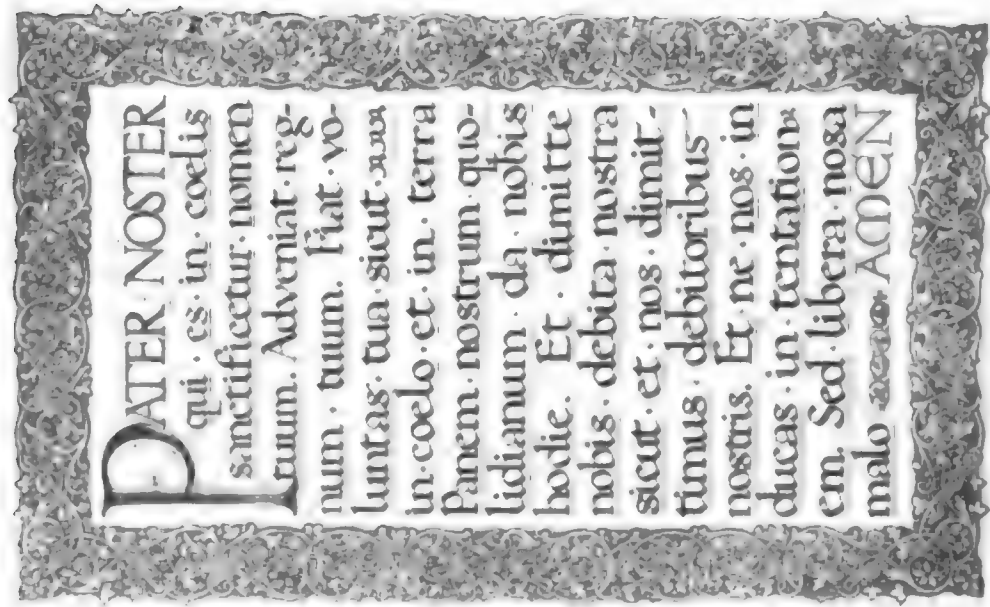 PATER NOSTER
qui · es · in · coelis
sanctificetur · nomen
tuum. Adveniat · reg-
num · tuum. Fiat · vo-
luntas · tua · sicut
in · coelo · et · in · terra
Panem · nostrum · quo-
lidianum · da · nobis
hodie. Et · dimitte
nobis · debita · nostra
sicut · et · nos · dimit-
timus · debitoribus
nostris. Et · ne · nos · in
ducas · in · tentation
em. Sed · libera · nosa
malo AMEN